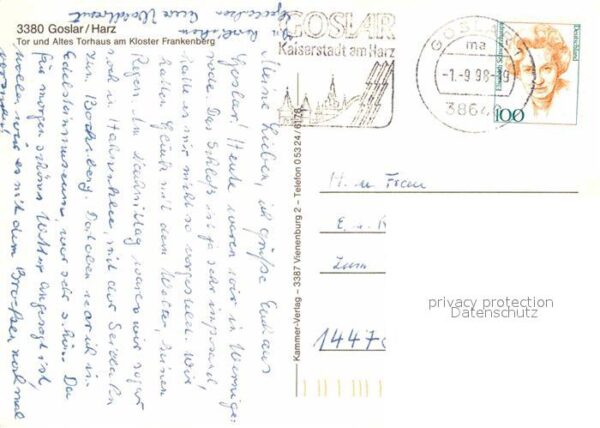 3380 Goslar/Harz
Tor und Altes Torhaus am Kloster Frankenberg
GOSLAR
Kaiserstadt am Harz
GOSLAR
ma
-1.-9.98-
3864
Deutschland
100
Kammer-Verlag – 3387 Vienenburg 2 – Telefon 05324/6178
Meine Lieben, ich grüße Euch aus
Goslar! Heute waren wir in Wernige-
rode. Das Schloß ist ja sehr imposant,
hatte es mir nicht so vorgestellt. Wir
hatten Glück mit dem Wetter, keinen
Regen. Im Nachmittag waren wir sogar
noch in Hahnenklee mit der Seilbahn
zum Bocksberg. Daneben war ich im
Edelsteinmuseum, war sehr schön. Da
für morgen schönes Wetter angesagt ist,
wollen wir es mit dem Brocken nochmal
H. u Frau
E. u. K
Zum
1447
privacy protection
Datenschutz